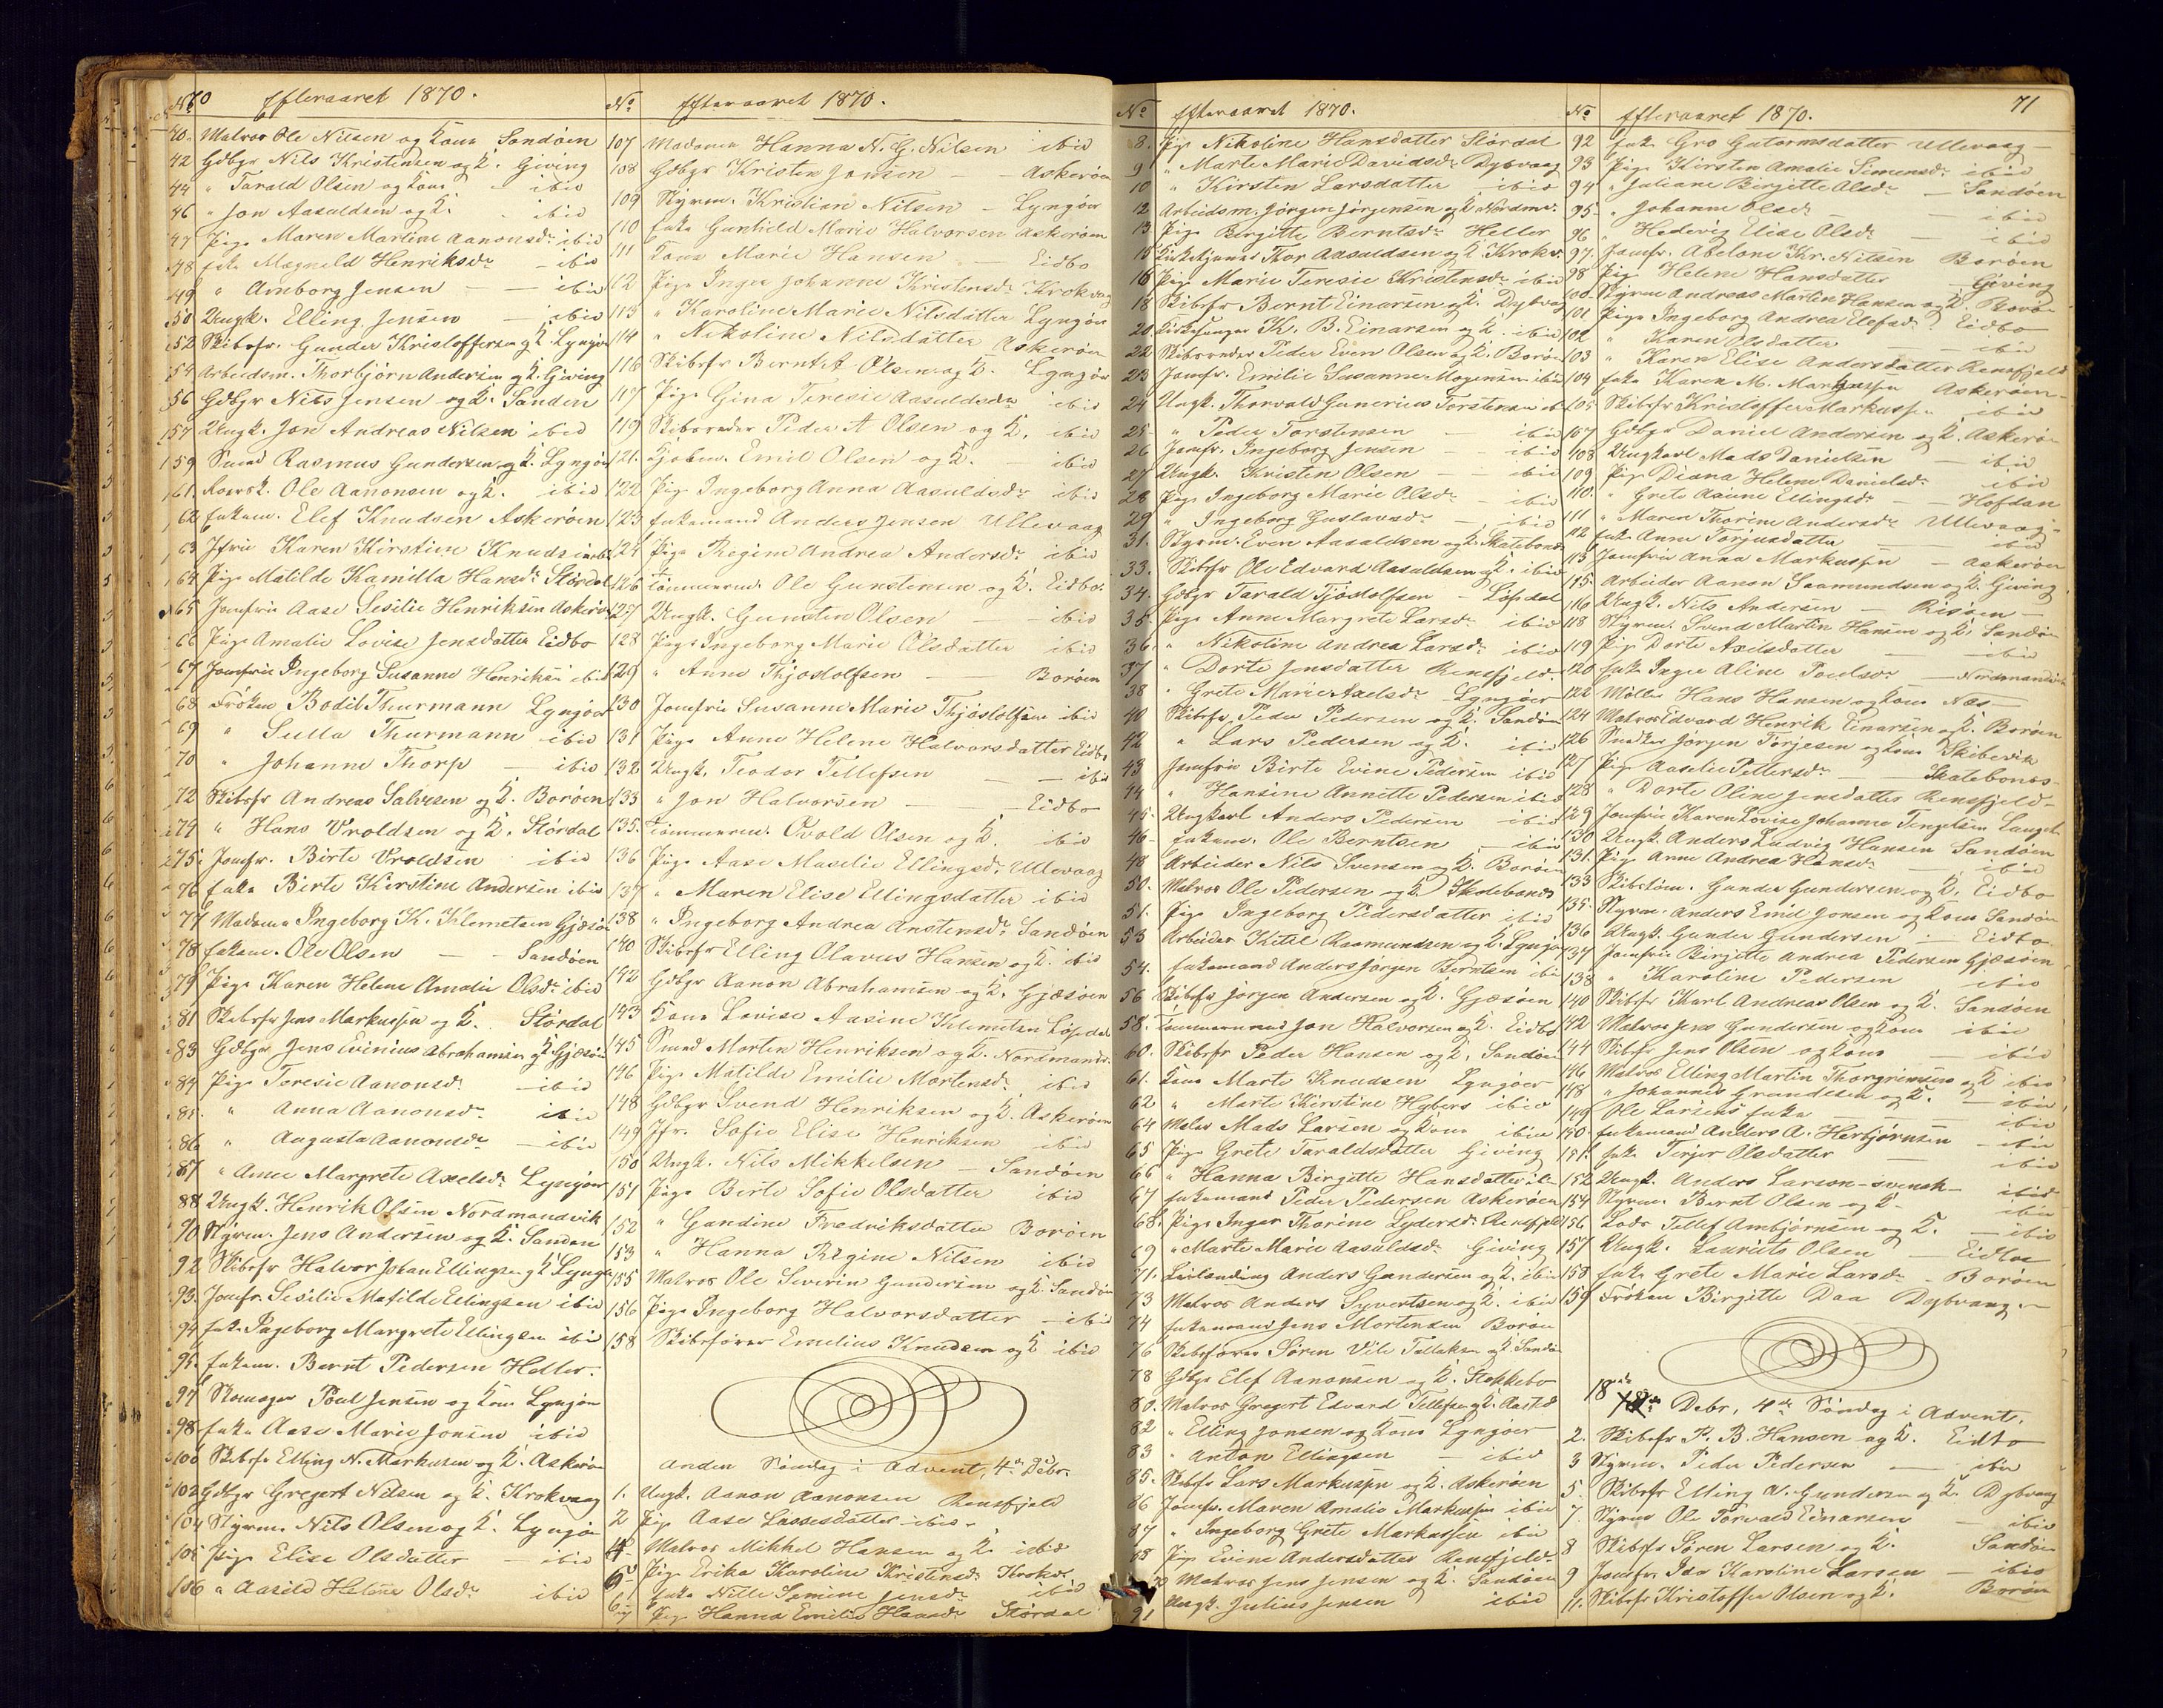 70 Efteraaret 1870.
40. Matros Ole Nilsen og Kone Sandøen
42 Gdbgr Nils Kristensen og K. Giving
44 " Tarald Olsen og Kone ibid
46 " Jon Aasuldsen og K. ibid
47 Pige Maren Martine Aanonsdr ibid
48 Enke Magnild Henriksdr ibid
49 " Amborg Jensen — ibid
50 Ungk. Elling Jensen — ibid
52 Skibsfr. Gunder Kristoffersen og K. Lyngør
54 Arbeidsm. Thorbjørn Andersen og K. Giving
56 Gdbgr Nils Jensen og K. Sanden
57 Ungk. Jon Andreas Nilsen ibid
59 Smed Rasmus Gundersen og K. Lyngør
61. Ole Aanonsen og K. ibid
62 Enkem. Elef Knudsen Askerøen
63 Jfru Karen Kirstine Knudsen ibd
64 Pige Matilde Kamilla Hansdr Stördal
65 Jomfru Aase Sesilie Henriksen Askerø
66 Pige Amalie Lovise Jensdatter Eidbo
67 Jomfru Ingeborg Susanne Henriksen ibid
68 Frøken Bodil Thurmann Lyngøer
69 " Sulla Thurmann ibid
70 " Johanne Thorp — ibid
72 Skibsfr Andreas Salvesen og K. Borøen
74 " Hans Vroldsen og K. Stördal
75 Jomfr. Birte Vroldsen ibid
76 Enke Birte Kirstine Andersen ibid
77 Madame Ingeborg K. Klemetsen Gjæsøen
78 Enkem. Ole Olsen — Sandøen
79 Pige Karen Helene Amalie Olsdr ibid
81 Skibsfr Jens Markussen og K. Stördal
83 Gdbgr Jens Evinius Abrahamsen og K. Gjæsøen
84 Pige Teresie Aanonsdr — ibid
85. " Anna Aanonsdr ibid
86 " Augusta Aanonsdr — ibid
87 " Anne Margrete Axelsdr Lyngør
88 Ungk. Henrik Olsen Nordmandvik
90 Styrm. Jens Andersen og K. Sanden
92 Skibsfr Halvor Johan Ellingsen og K. Lyngø
93. Jomfr. Sesilie Matilde Ellingsen ibid
94 Enke Ingeborg Margrete Ellingsen ibid
95. Enkem. Bernt Pedersen Heller.
97 Skomager Poul Jensen og Kone Lyngøer
98 Enke Aase Marie Jensen ibid
100 Skibsfr Elling N. Markusen og K. Askerøn
102 Gdbgr Gregert Nilsen og K. Krokvaag
104 Styrm. Nils Olsen og K. Lyngør
105 Pige Elise Olsdatter — ibid
106 " Aasild Helene Olsdr ibid
No Efteraaret 1870.
107 Madame Hanna N. G. Nilsen ibid
108 Gdbgr Kristen Jensen — Askerøen
109 Styrm. Kristian Nilsen — Lyngøer
110 Enke Gunhild Marie Halvorsen Askerøen
111 Kone Marie Hansen — Eidbo
112 Pige Inger Johanne Kristensdr Krokvag
113 " Karoline Marie Nilsdatter Lyngøer
114 " Nikoline Nilsdatter Askerøen
116 Skibsfr Bernt A Olsen og K. Lyngør
117 Pige Gina Teresie Aasuldsdr ibid
119 Skibsreder Peder A Olsen og K. ibid
121. Emil Olsen og K. — ibid
122 Pige Ingeborg Anna Aasuldsdr ibid
123 Enkemand Anders Jensen Ullevaag
124 Pige Regine Andrea Andersdr ibid
126 Tømmerm. Ole Gunstensen og K. Eidbo.
127 Ungk. Gunsten Olsen — ibid
128 Pige Ingeborg Marie Olsdatter ibid
129 " Anne Thjostolfsen — Borøen
130 Jomfru Susanne Marie Thjostolfsen ibid
131 Pige Anne Helene Halvorsdatter Eidbo
132 Ungk. Teodor Tellefsen — ibid
133 " Jon Halvorsen — Eidbo
135. Tömmerm. Ovold Olsen og K. ibid
136 Pige Aase Maselie Ellingsd. Ullevaag
137 " Maren Elise Ellingsdatter ibid
138 " Ingeborg Andrea Anstensdr Sandøen
140 Skibsfr Elling Olavus Hansen og K. ibid
142 Gdbgr Aanon Abrahamsen og K. Gjæsøen
143 Kone Lovise Aasine Klemetsen Løsdal
145 Smed Morten Henriksen og K. Nordmandv.
146 Pige Matilde Emilie Mortensd. ibid
148 Gdbgr Svend Henriksen og K. Askerøen
149 Jfr. Sofie Elise Henriksen ibid
150 Ungk. Nils Mikkelsen — Sandøen
151 Pige Birte Sofie Olsdatter ibid
152 " Gundine Fredriksdatter Borøen
153 " Hanna Regine Nilsen ibid
155 Matros Ole Severin Gundersen og K. Sandøn
156 Pige Ingeborg Halvorsdatter — ibid
158 Skibsfører Emelius Knudsen og K ibid
Anden Søndag i Advent, 4de Debr.
1. Ungk. Aanon Aanonsen Rensfjeld
2 Pige Aase Lassesdatter ibid.
4 Matros Mikkel Hansen og K. ibid
5 Pige Erika Karoline Kristensd. Krokv.
6 Enke Nille Jensdr ibid
7 Pige Hanna Emilie Hansdr Stördal
No Efteraaret 1870.
8. Pige Nikoline Hansdatter Stördal
9 " Marte Marie Davidsdr Dybvaag
10 " Kirsten Larsdatter ibid
12 Arbeidsm. Jørgen Jørgensen og K Nordmv.
13. Pige Birgitte Berntsdr Heller
15 Kirketjener Thor Aasuldsen og K. Krokv.
16 Pige Marie Teresie Kristensdr ibid
18 Skibsfr Bernt Einarsen og K. Dybvag
20 Kirkesanger K. B. Einarsen og K. ibid
22 Skibsreder Peder Even Olsen og K. Borøen
23 Jomfr. Emilie Susanne Mogensen ibid
24 Ungk. Thorvald Gunerius Terstensen ib
25 " Peder Torstensen — ibid
26 Jomfr. Ingeborg Jensen — ibid
27 Ungk. Kristen Olsen — ibid
28 Pige Ingeborg Marie Olsdr — ibid
29 " Ingeborg Gustavsdr — ibid
31. Styrm. Even Aasuldsen og K. Skatebonds
33. Skibsfr Ol Edvard Aasuldsen og K. ibid
34. Gdbgr Tarald Tjøstolfsen — Løsdal
35. Pige Anne Margrete Larsdr ibid
36. " Nikoline Andrea Larsdr ibid
37 " Dorte Jensdatter Rensfjeld.
38 " Grete Marie Axelsdr Lyngøer
40 Skibsfr. Peder Pedersen og K. Sandøen
42 " Lars Pedersen og K. ibid
43 Jomfru Birte Evine Pedersen ibid
44 " Hansine Annette Pedersen ibid
45. Ungkarl Anders Pedersen ibid
46 Enkem. Ole Berntsen — ibid
48 Arbeider Nils Svensen og K. Borøen
50. Matros Ole Pedersen og K. Skatebonds
51. Pige Ingeborg Pedersdatter ibid
53 Arbeider Ketil Rasmundsen og K. Lyngør
54. Enkemand Anders Jørgen Berntsen ibi
56 Skibsfr Jørgen Andersen og K. Gjæsøen
58. Tømmermand Jon Halvorsen og K. Eidbo
60. Skibsfr Peder Hansen og K. Sandøen
61. Kone Marte Knudsen Lyngøer
62 " Marte Kirstine Hybers ibid
64 Maler Mads Larsen og Kone ibid
65 Pige Grete Taraldsdatter Giving
66 " Hanna Birgitte Hansdatter ib
67 Enkemand Peder Pedersen Askerøen
68. Pige Inger Thorine Lydersdr Rensfjeld
69 " Marte Marie Aasuldsdr Giving
71. Anders Gundersen og K. ibid
73 Matros Anders Syvertsen og K. ibid
74 Enkemand Jens Mortensen Borøen
76 Skibsfører Søren Vile Tellefsen og K. Sandø
78 Gdbgr Elef Aanonsen og K. Stokkebo
80. Matros Gregert Edvard Tellefsen og K.
82 " Elling Jonsen og Kone Lyngøer
83 " Anton Ellingsen — ibid
85. Skibsfr Lars Markussen og K. Askerøen
86 Jomfr. Maren Amalie Markussen ibid
87 " Ingeborg Grete Markussen ibid
88 Pige Evine Andersdatter Rensfjeld.
90 Matros Jens Jensen og K. Sandøen
91 Ungk. Julius Jensen ibid
No Efteraaret 1870. 71
92 Enke Gro Gutormsdatter Ullevaag —
93 Pige Kirsten Amalie Simensdr ibid
94 " Juliane Birgitte Olsdr — Sandøen
95 " Johanne Olsdr — ibid
96 " Hedevig Elise Olsdr — ibid
97. Jomfr. Abelone Kr. Nilsen Borøen
98 Pige Helene Hansdatter Giving
100 Styrm Andreas Martin Hansen og K. Borø
101 Pige Ingeborg Andrea Elefsdr Eidbo
102 " Karen Olsdatter — ibid
103 " Karen Elise Andersdatter Rensfjeld
104 Enke Karen M. Markussen Askerøen
105 Skibsfr Kristoffer Markussen ibid
107 Gdbgr Daniel Andersen og K. Askerøn
108 Ungkarl Mads Danielsen — ibid
109 Pige Diana Helene Danielsdr ibid
110. " Grete Aanne Ellingsdr — Hofdan
111 " Maren Thorine Andersdr Ullevaag
112 Enke Anne Torjusdatter ibid
113 Jomfru Anna Markussen — Askerøen
115. Arbeider Aanon Saamundsen og K. Giving
116 Ungk. Nils Andersen — Risøen —
118 Styrm. Svend Martin Hansen og K. Sandøn
119 Pige Dorte Axelsdatter — ibid
120 Enke Inger Aline Poulsdr — Nordmandvik
122 Møller Hans Hansen og Kone Næs —
124 Matros Edvard Henrik Einarsen og K. Borøen
126 Snedker Jørgen Torjesen og Kone Skibsvik
127 Pige Aaselie Pettersdr — Skatebonds
128 " Dorte Oline Jensdatter Rensfjeld
129 Jomfru Karen Lovise Johanne Tengelsen
130 Ungk. Anders Ludvig Hansen Sandøen
131. Pige Anne Andrea Hansdr — ibid
133 Skibstøm. Gunder Gundersen og K. Eidbo
135. Styrm. Anders Emil Jonsen og Kone Sandøen
136 Ungk. Gunder Gundersen — Eidbo
137 Jomfru Birgitte Andrea Pedersen Gjæsøen
138 " Karoline Pedersen ibid
140 Skibsfr Karl Andreas Olsen og K. Sandøen
142 Matros Jens Gundersen og Kone ibid
144 Skibsfr Jens Olsen og Kone — ibid
146 Matros Elling Martin Thorgrimsen og K ibid
148 " Johannes Grundesen og K. — ibid
149 Ole Larsens Enke — ibid
150 Enkemand Anders A. Herbjørnsen — ibid
151. Enke Terjer Olsdatter — ibid
152 Ungk. Anders Larson — svensk — ibid
154 Styrm. Bernt Olsen og K. ibid
156 Lods Tellef Ambjørnsen og K. — ibid
157 Ungk. Laurits Olsen — Eidbo
158 Enke Grete Marie Larsdr — Borøen
159 Frøken Birgitte Daa Dybvaag. —
18de Debr, 4de Søndag i Advent.
2. Skibsfr P. B. Hansen og K. Eidbo
3 Styrm. Peder Pedersen — ibid
5. Skibsfr Elling A. Gundersen og K. Dybvaag
7. Styrm Ole Torvald Einarsen — ibid
8 Skibsfr Søren Larsen og K. Sandøen
9 Jomfr. Ida Karoline Larsen — ibid
11. Skibsfr Kristoffer Olsen og K. Borøn